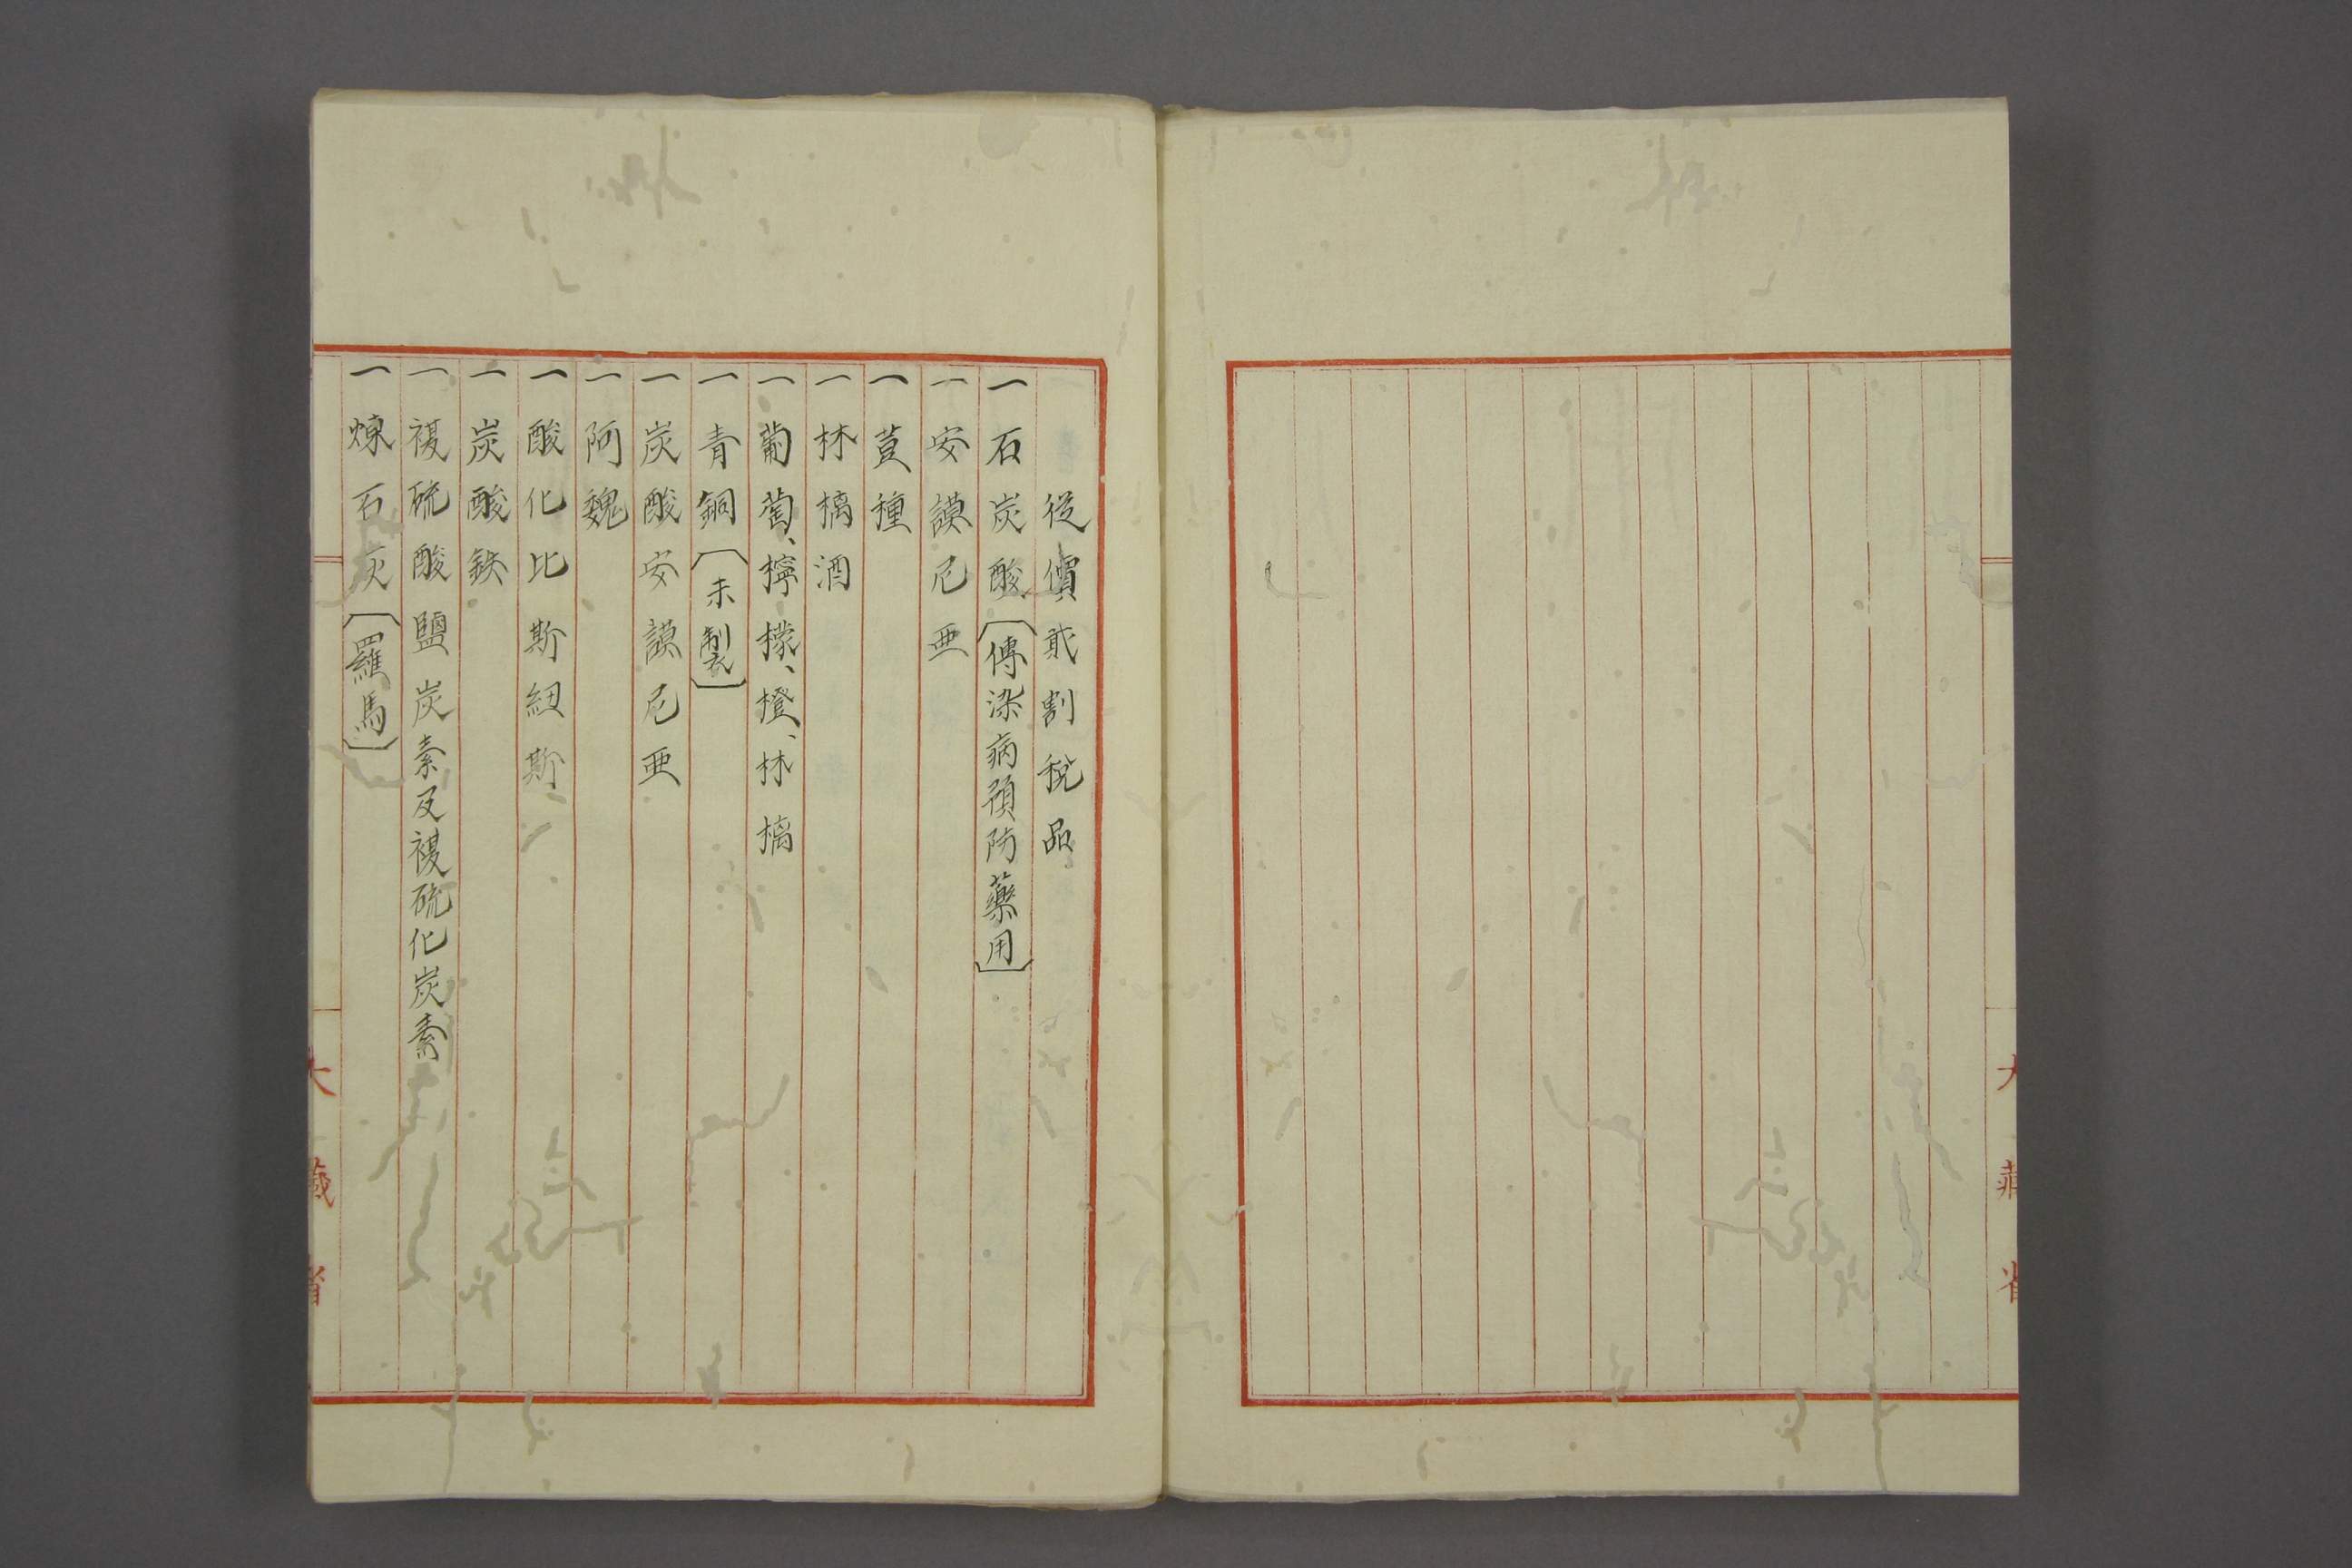 大藏省
從價貮割税品
一石炭酸〔傳染病預防藥用〕
一安謨尼亜
一荳種
一林檎酒
一葡萄、檸檬、橙、林檎
一青銅〔未製〕
一炭酸安謨尼亜
一阿魏
一酸化比斯紐斯
一炭酸鉄
一複硫酸鹽炭素及複硫化炭素
一煉石灰〔羅馬〕
大藏省